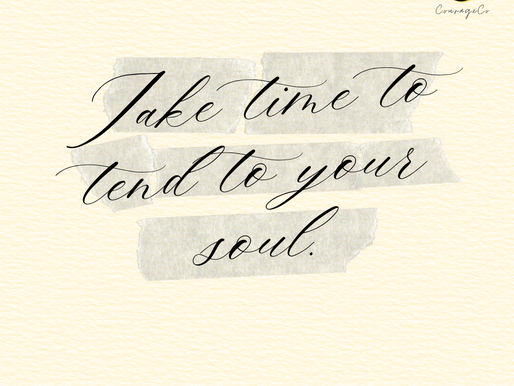 CourageCo
Take time to
tend to your
soul.